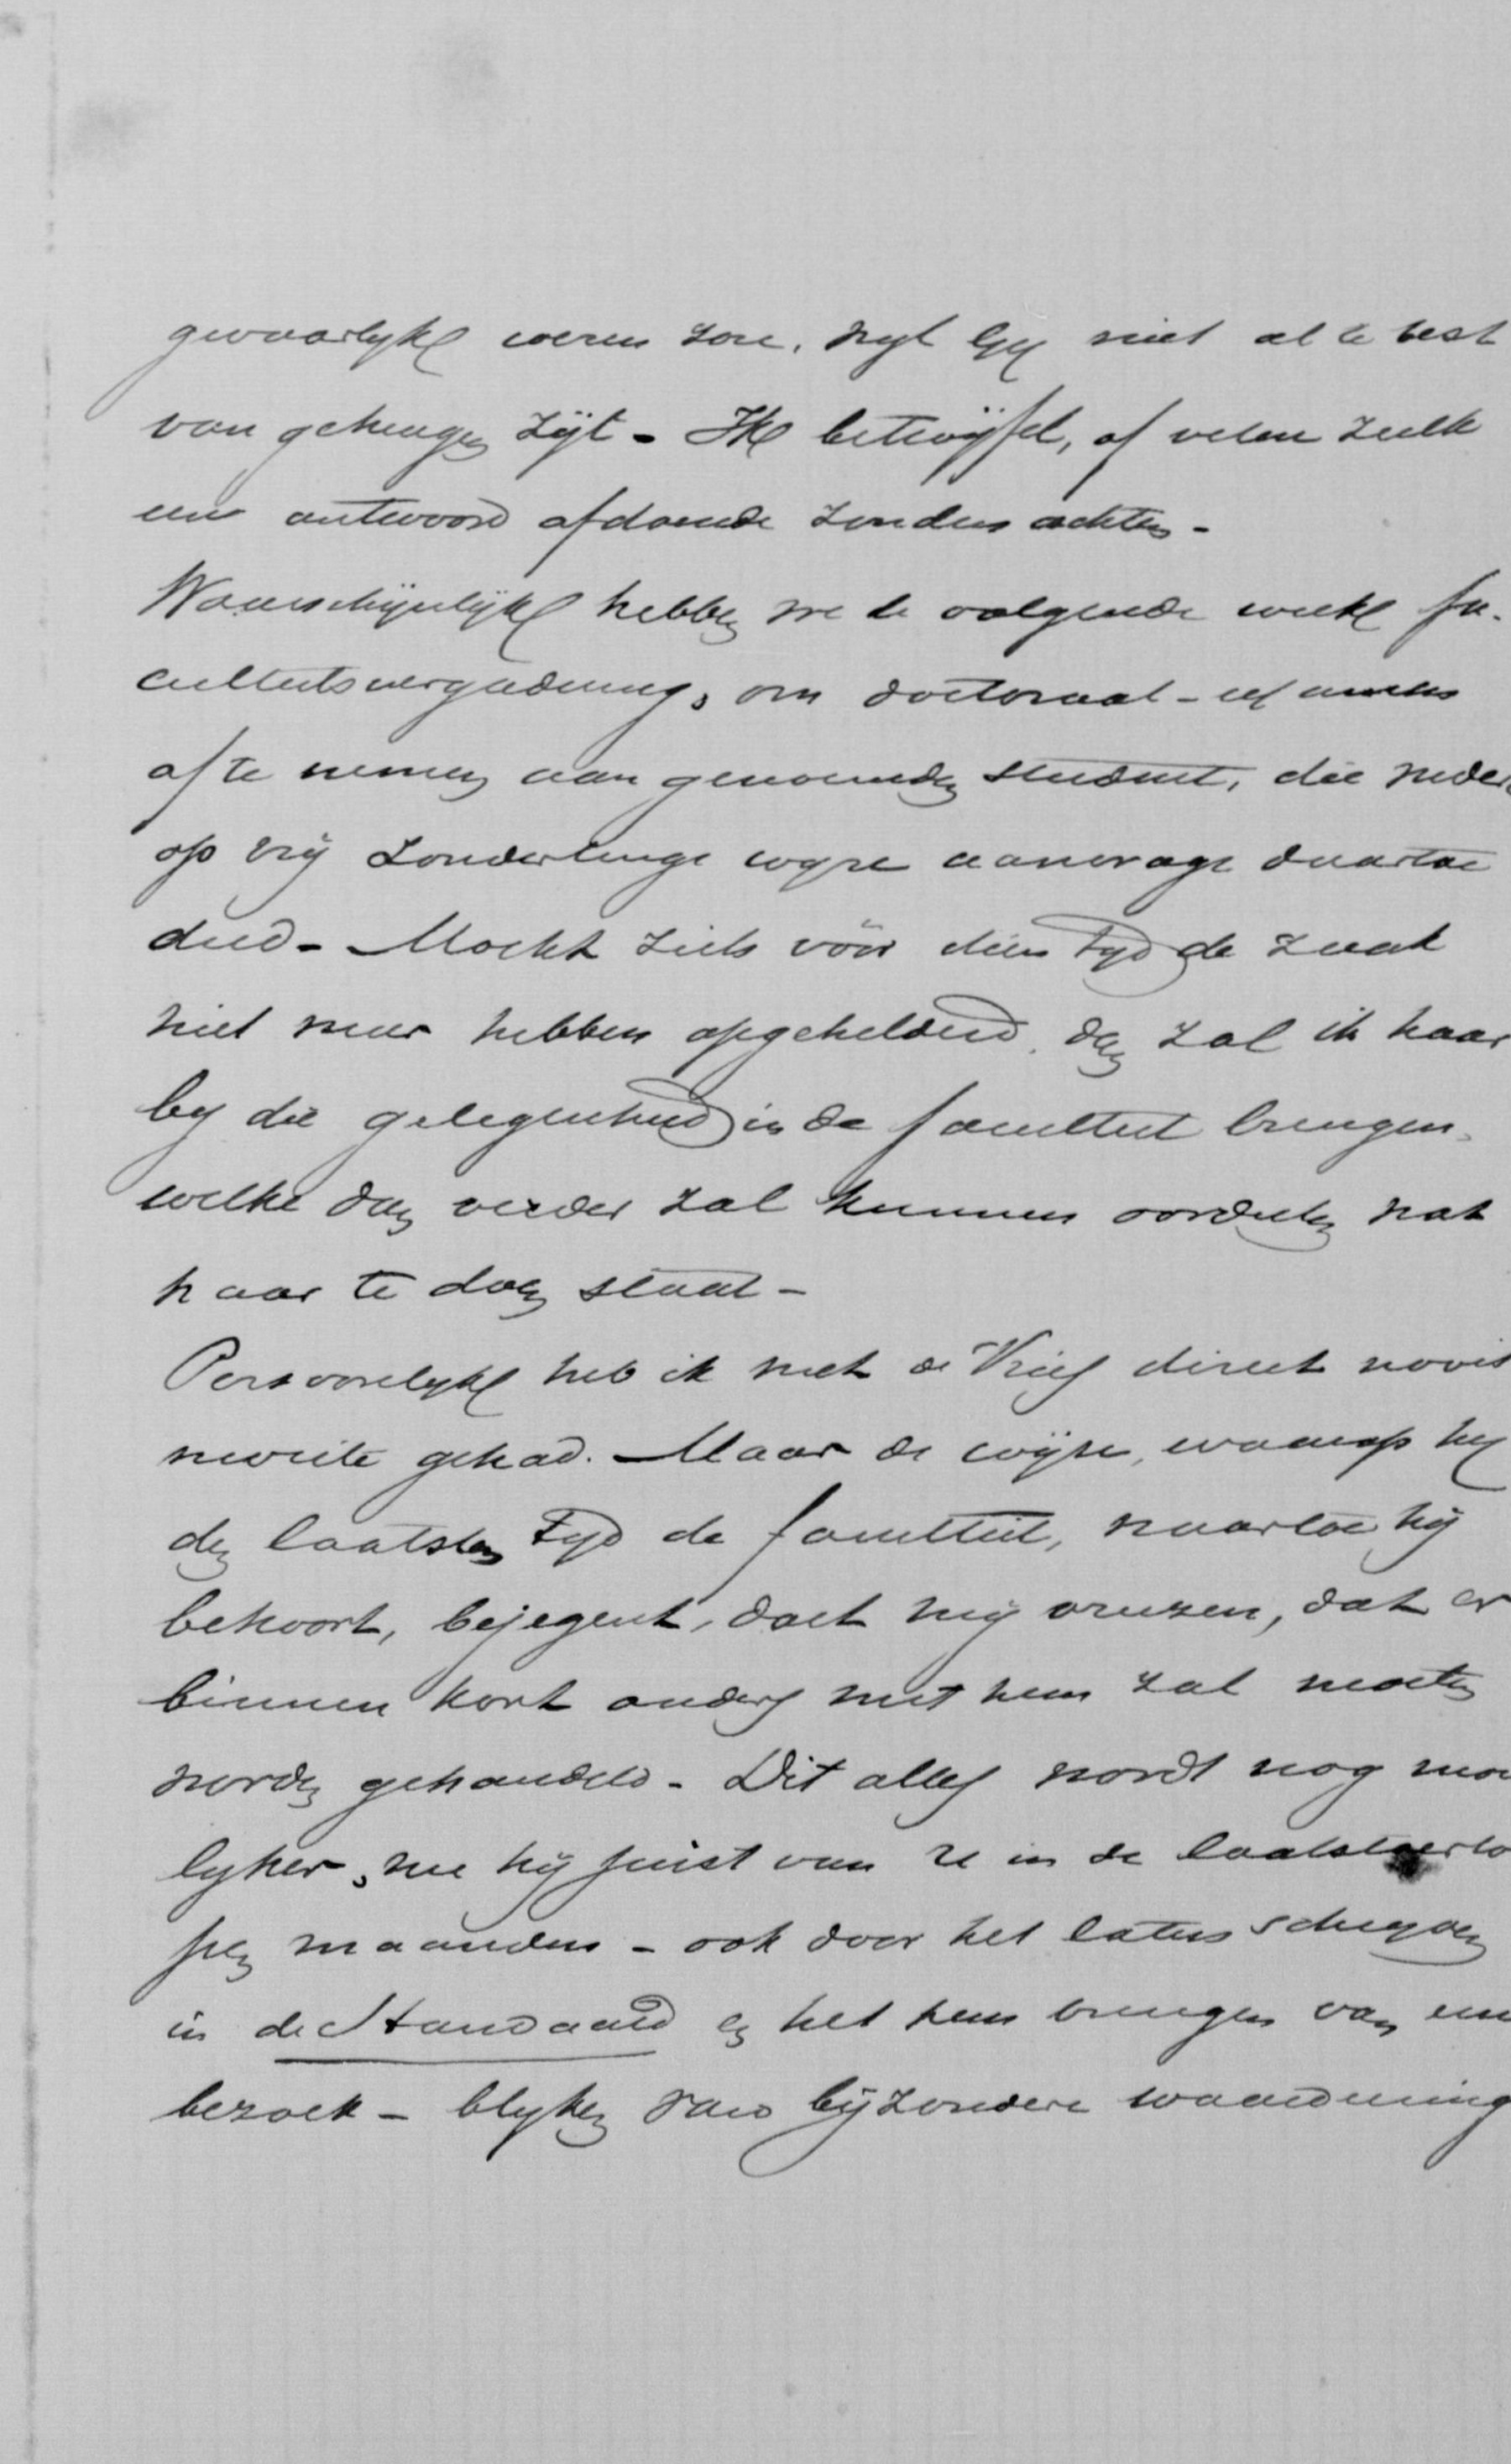 gevaarlijk wezen zou, wijl Gij niet al te best
van geheugen zijt - Ik betwijfel, of velen zulk
een antwoord afdoende zouden achten -
Waarschijnlijk hebben we de volgende week fa-
culteitsvergadering, om doctoraal-examen
af te nemen aan genoemden student, die weder
op vrij zonderlinge wijze aanvrage daartoe
deed - Mocht zich vóór dien tijd de zaak
niet meer hebben opgehelderd, dan zal ik haar
bij die gelegenheid in de faculteit brengen,
welke dan verder zal kunnen oordeelen wat
haar te doen staat -
Persoonlijk heb ik met de Vries direct nooit
moeite gehad. - Maar de wijze, waarop hij
den laatsten tijd de faculteit, waartoe hij
behoort, bejegent, doet mij vreezen, dat er
binnen kort anders met hem zal moeten
worden gehandeld - Dit alles wordt nog moei
lijker, nu hij juist van U in de laatstverloo
pen maanden - ook door het laten schrijven
in de Standaard en het hem brengen van een
bezoek - blijken van bijzondere waardeering